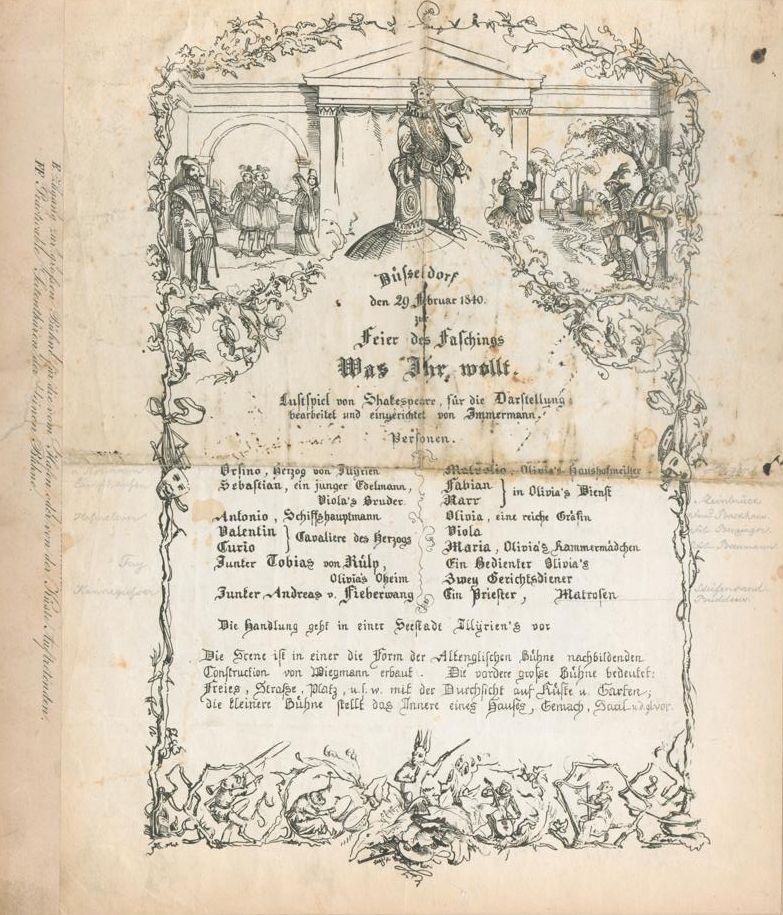 Düsseldorf
den 29 Februar 1840.
zur
Feier des Faschings
Was Ihr wollt.
Lustspiel von Shakespeare, für die Darstellung
bearbeitet und eingerichtet von Immermann.
Personen.
Orsino, Herzog von Illÿrien
Sebastian, ein junger Edelmann,
Viola's Bruder
Antonio, Schiffshauptmann
Valentin
Curio } Cavaliere des Herzogs
Junker Tobias von Rülp,
Olivia's Oheim
Junker Andreas v. Fieberwang
Malvolio, Olivia's Haushofmeister
Fabian
Narr } in Olivia's Dienst
Olivia, eine reiche Gräfin
Viola
Maria, Olivia's Kammermädchen
Ein Bedienter Olivia's
Zwey Gerichtsdiener
Ein Priester, Matrosen
Die Handlung geht in einer Seestadt Illÿrien's vor
Die Scene ist in einer die Form der Altenglischen Bühne nachbildenden
Construction von Wiegmann erbaut. Die vordere große Bühne bedeutet:
Freies, Straße, Platz, u.s.w. mit der Durchsicht auf Küste u. Garten;
die kleinere Bühne stellt das Innere eines Hauses, Gemach, Saal u.dgl. vor.
zur großen Bühne für die vom Hafen oder von der Küste Auftretenden.
Seitenthüren der kleinen Bühne.
Kannegiesser